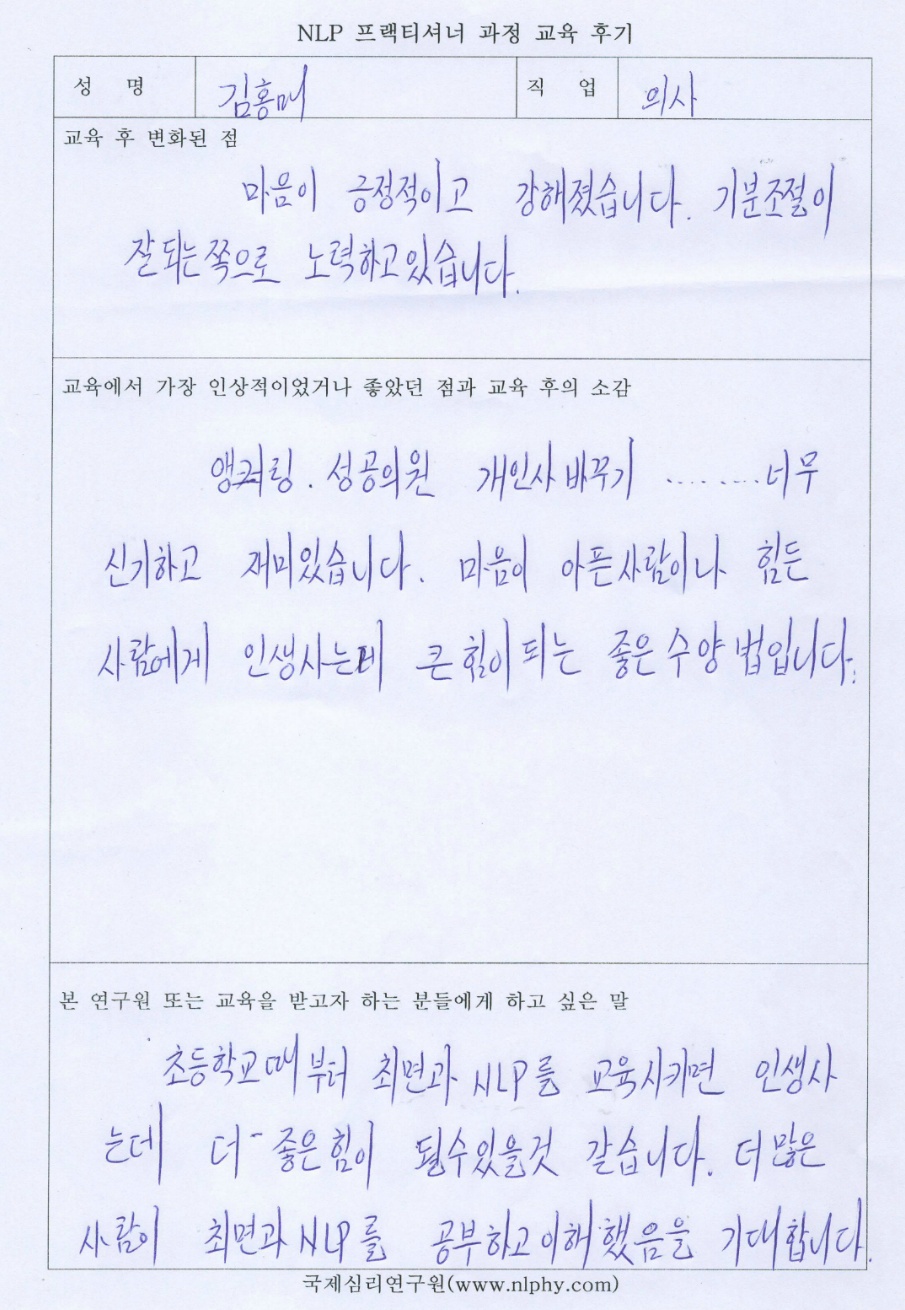 NLP 프랙티셔너 과정 교육 후기
성 명 김홍매 직 업 의사
교육 후 변화된 점
마음이 긍정적이고 강해졌습니다. 기분조절이
잘되는쪽으로 노력하고있습니다.
교육에서 가장 인상적이었거나 좋았던 점과 교육 후의 소감
앵커링. 성공의원 개인사바꾸기 ........ 너무
신기하고 재미있습니다. 마음이 아픈사람이나 힘든
사람에게 인생사는데 큰힘이되는 좋은수양법입니다.
본 연구원 또는 교육을 받고자 하는 분들에게 하고 싶은 말
초등학교때부터 최면과 NLP를 교육시키면 인생사
는데 더- 좋은힘이 될수있을것 같습니다. 더많은
사람이 최면과 NLP를 공부하고이해했음을 기대합니다.
국제심리연구원(www.nlphy.com)